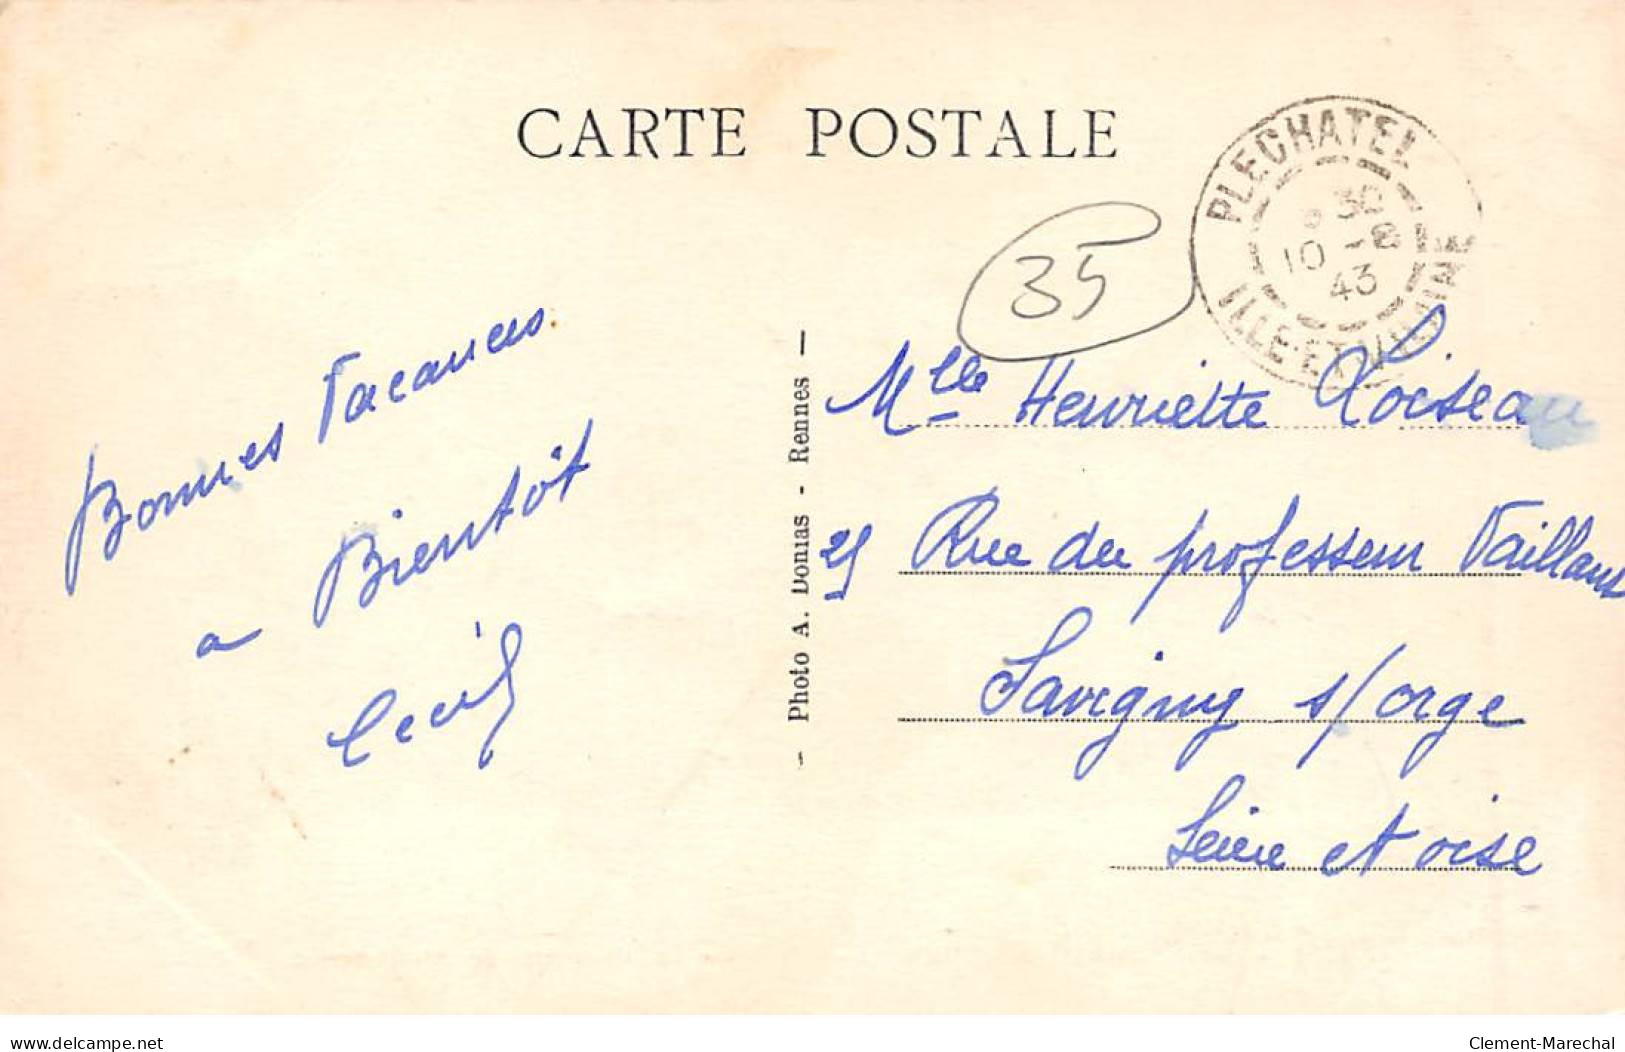 CARTE POSTALE
PLECHATEL
30
10 -8
43
ILLE-ET-VILAINE
35
Bonnes Vacances
a Bientôt
Cécile
— Photo A. Domas - Rennes —
Mlle Henriette Loiseau
25 Rue du professeur Vaillant
Savigny s/orge
Seine et oise
www.delcampe.net
Clement-Marechal